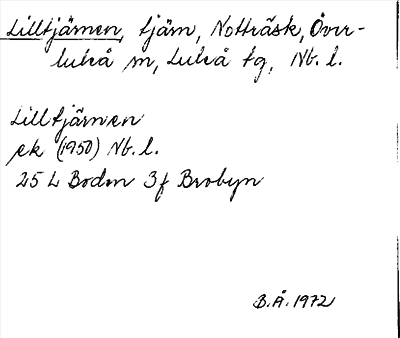 Lilltjärnen, tjärn, Notträsk, Över-
luleå sn, Luleå tg, Nb. l.
Lilltjärnen
ek (1950) Nb. l.
25 L Boden 3f Brobyn
B.Å. 1972